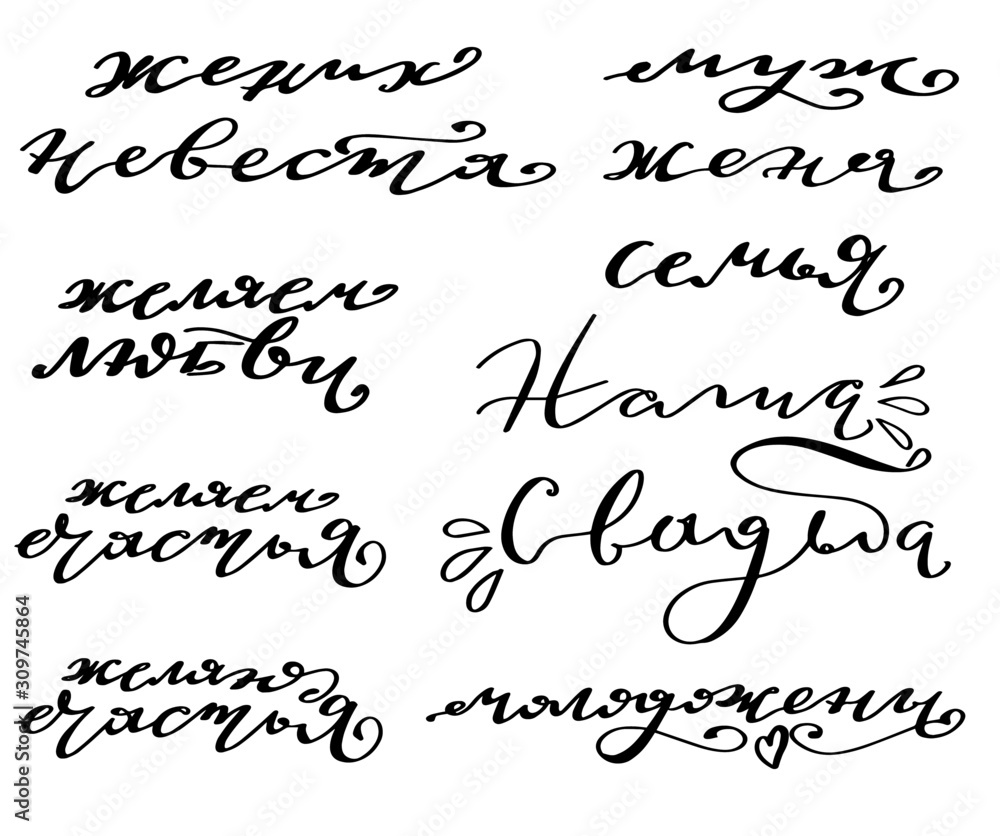 жених
невеста
желаем
любви
желаем
счастья
желаю
счастья
муж
жена
семья
Наша
Свадьба
молодожены
Adobe Stock | #309745864